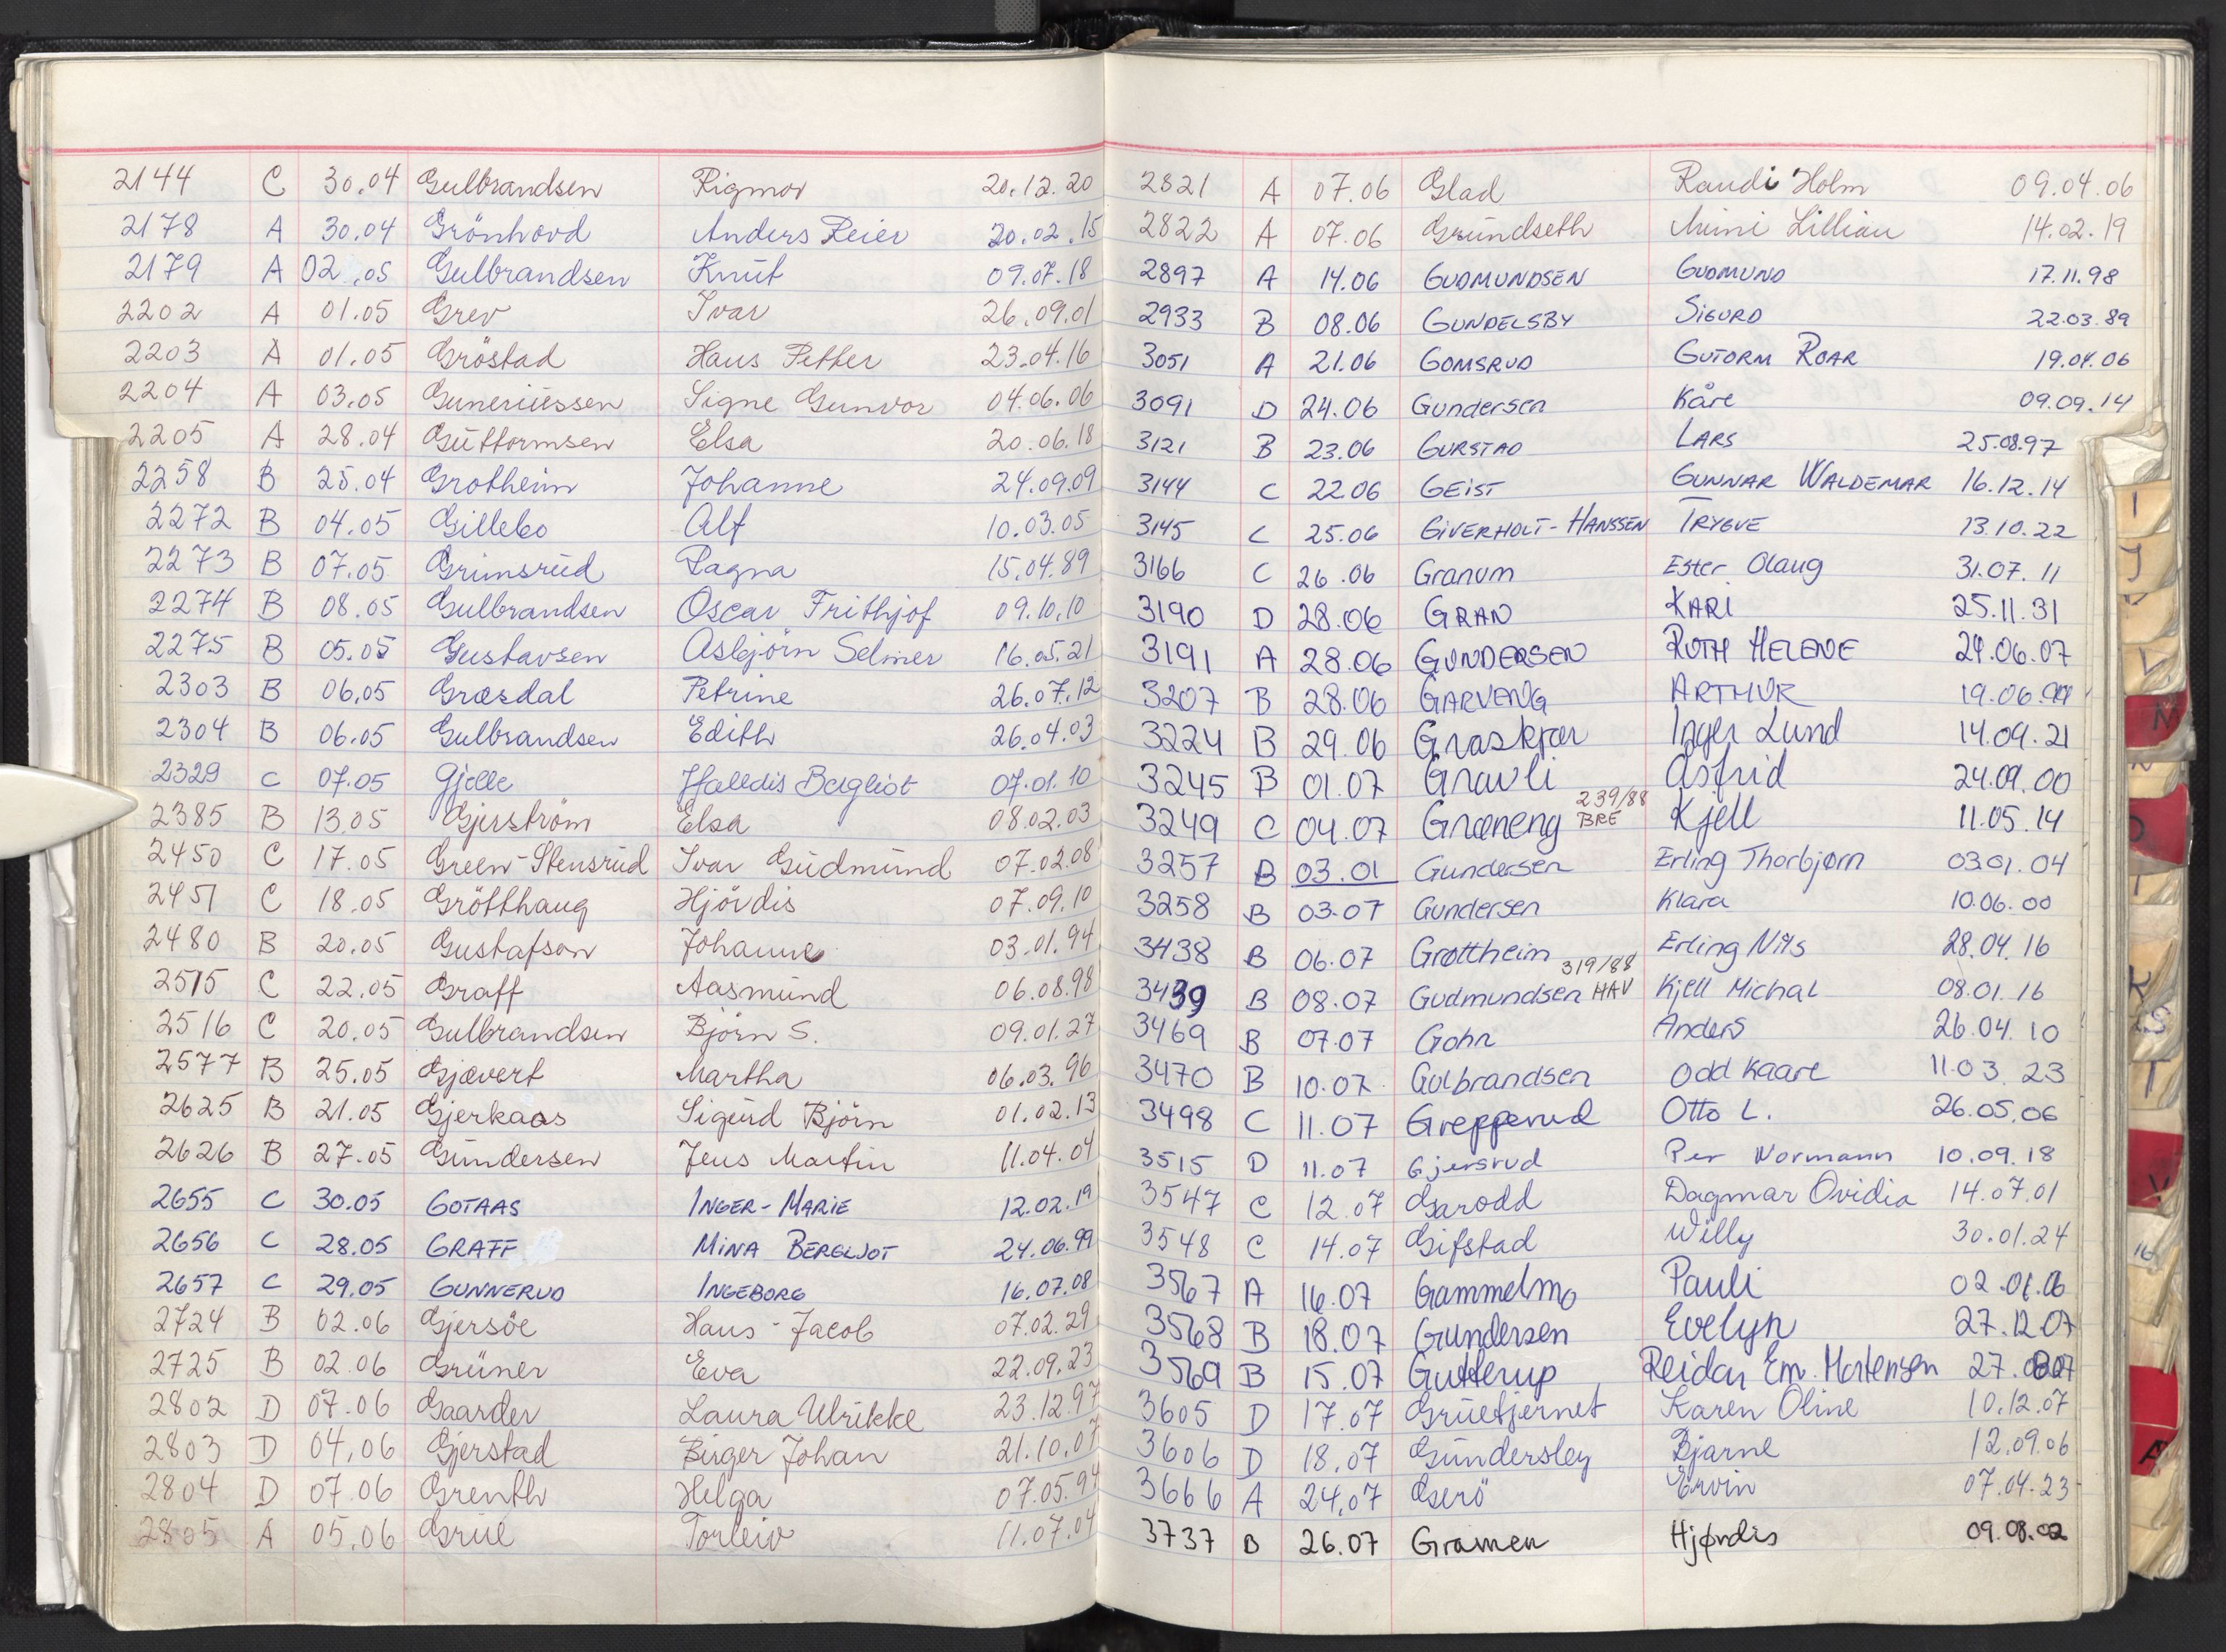 2144 C 30.04 Gulbrandsen Rigmor 20.12.20
2178 A 30.04 Grönhovd Anders Reier 20.02.15
2179 A 02.05 Gulbrandsen Knut 09.07.18
2202 A 01.05 Grev Ivar 26.09.01
2203 A 01.05 Gröstad Hans Petter 23.04.16
2204 A 03.05 Guneriussen Signe Gunvor 04.06.06
2205 A 28.04 Guttormsen Elsa 20.06.18
2258 B 25.04 Grotheim Johanne 24.09.09
2272 B 04.05 Gillebo Alf 10.03.05
2273 B 07.05 Grimsrud Ragna 15.04.89
2274 B 08.05 Gulbrandsen Oscar Frithjof 09.10.10
2275 B 05.05 Gustavsen Asbjörn Selmer 16.05.21
2303 B 06.05 Græsdal Petrine 26.07.12
2304 B 06.05 Gulbrandsen Edith 26.04.03
2329 C 07.05 Gjelle Halldis Bergliot 07.01.10
2385 B 13.05 Gjerström Elsa 08.02.03
2450 C 17.05 Green-Stensrud Ivar Gudmund 07.02.08
2451 C 18.05 Grötthaug Hjördis 07.09.10
2480 B 20.05 Gustafson Johanne 03.01.94
2515 C 22.05 Graff Aasmund 06.08.98
2516 C 20.05 Gulbrandsen Björn S. 09.01.27
2577 B 25.05 Gjævert Martha 06.03.96
2625 B 21.05 Gjerkaas Sigurd Björn 01.02.13
2626 B 27.05 Gundersen Jens Martin 11.04.04
2655 C 30.05 GOTAAS INGER-MARIE 12.02.19
2656 C 28.05 GRAFF MINA BERGLJOT 24.06.99
2657 C 29.05 GUNNERUD INGEBORG 16.07.08
2724 B 02.06 Gjersöe Hans-Jacob 07.02.29
2725 B 02.06 Grüner Eva 22.09.23
2802 D 07.06 Gaarder Laura Ulrikke 23.12.97
2803 D 04.06 Gjerstad Birger Johan 21.10.07
2804 D 07.06 Grenth Helga 07.05.94
2805 A 05.06 Grue Torleiv 11.07.04
2821 A 07.06 Glad Randi Holm 09.04.06
2822 A 07.06 Grundseth Mimi Lillian 14.02.19
2897 A 14.06 GUDMUNDSEN GUDMUND 17.11.98
2933 B 08.06 GUNDELSBY SIGURD 22.03.89
3051 A 21.06 GOMSRUD GUTORM ROAR 19.04.06
3091 D 24.06 Gundersen Kåre 09.09.14
3121 B 23.06 GURSTAD LARS 25.08.97
3144 C 22.06 GEIST GUNNAR WALDEMAR 16.12.14
3145 C 25.06 GIVERHOLT-HANSSEN TRYGVE 13.10.22
3166 C 26.06 Granum Ester Olaug 31.07.11
3190 D 28.06 GRAN KARI 25.11.31
3191 A 28.06 GUNDERSEN RUTH HELENE 24.06.07
3207 B 28.06 GARVENG ARTHUR 19.06.
3224 B 29.06 Graskjær Inger Lund 14.09.21
3245 B 01.07 Gravli Astrid 24.09.00
239/88
3249 C 04.07 Græneng BRE Kjell 11.05.14
3257 B 03.01 Gundersen Erling Thorbjørn 03.01.04
3258 B 03.07 Gundersen Klara 10.06.00
3438 B 06.07 Grøttheim Erling Nils 28.04.16
319/88
3439 B 08.07 Gudmundsen HAV Kjell Michal 08.01.16
3469 B 07.07 Gohn Anders 26.04.10
3470 B 10.07 Gulbrandsen Odd Kaare 11.03.23
3498 C 11.07 Grepperud Otto L. 26.05.06
3515 D 11.07 Gjersrud Per Normann 10.09.18
3547 C 12.07 Garodd Dagmar Ovidia 14.07.01
3548 C 14.07 Gifstad Willy 30.01.24
3567 A 16.07 Gammelmo Pauli 02.01.06
3568 B 18.07 Gundersen Evelyn 27.12.07
3569 B 15.07 Gutterup Reidar Em. Mortensen 27.
3605 D 17.07 Gruetjernet Karen Oline 10.12.07
3606 D 18.07 Gundersley Bjarne 12.09.06
3666 A 24.07 Gserö Ervin 07.04.23
3737 B 26.07 Gramen Hjørdis 09.08.02
I
J
M
O
K
S
T